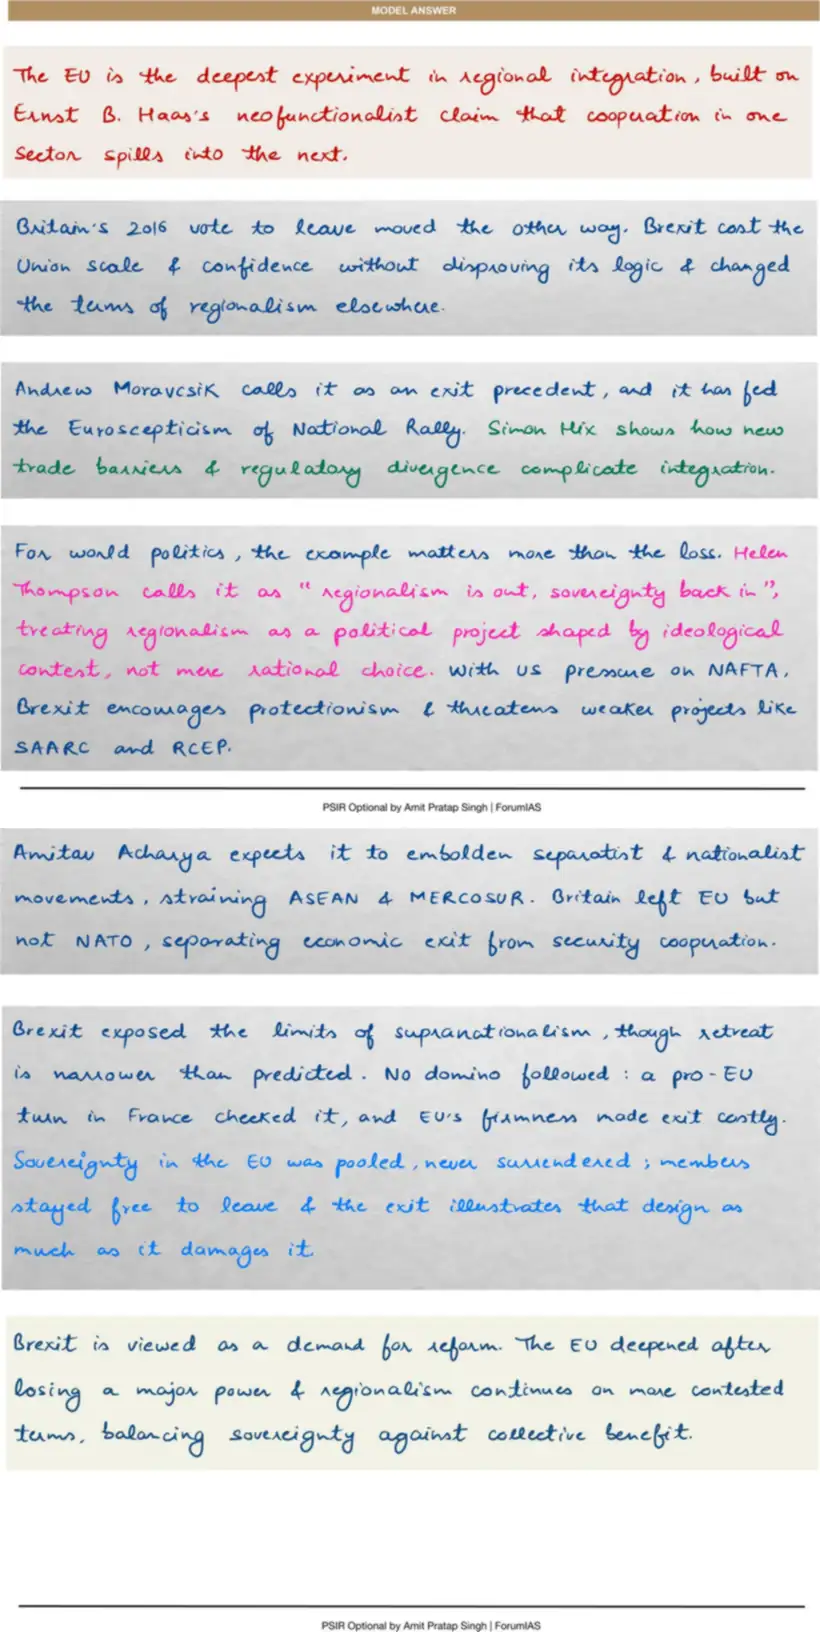 MODEL ANSWER
The EU is the deepest experiment in regional integration, built on
Ernst B. Haas's neofunctionalist claim that cooperation in one
Sector spills into the next.
Britain's 2016 vote to leave moved the other way. Brexit cost the
Union scale & confidence without disproving its logic & changed
the terms of regionalism elsewhere.
Andrew Moravcsik calls it as an exit precedent, and it has fed
the Euroscepticism of National Rally. Simon Hix shows how new
trade barriers & regulatory divergence complicate integration.
For world politics, the example matters more than the loss. Helen
Thompson calls it as "regionalism is out, sovereignty back in",
treating regionalism as a political project shaped by ideological
contest, not mere rational choice. With US pressure on NAFTA,
Brexit encourages protectionism & threatens weaker projects like
SAARC and RCEP.
PSIR Optional by Amit Pratap Singh | ForumIAS
Amitav Acharya expects it to embolden separatist & nationalist
movements, straining ASEAN & MERCOSUR. Britain left EU but
not NATO, separating economic exit from security cooperation.
Brexit exposed the limits of supranationalism, though retreat
is narrower than predicted. No domino followed: a pro-EU
turn in France checked it, and EU's firmness made exit costly.
Sovereignty in the EU was pooled, never surrendered; members
stayed free to leave & the exit illustrates that design as
much as it damages it.
Brexit is viewed as a demand for reform. The EU deepened after
losing a major power & regionalism continues on more contested
terms, balancing sovereignty against collective benefit.
PSIR Optional by Amit Pratap Singh | ForumIAS